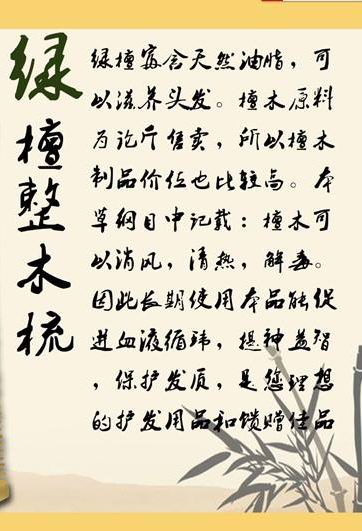 绿檀整木梳
绿檀富含天然油脂，可
以滋养头发。檀木原料
为论斤售卖，所以檀木
制品价位也比较高。本
草纲目中记载：檀木可
以消风，清热，解毒。
因此长期使用本品能促
进血液循环，提神益智
，保护发质，是您理想
的护发用品和馈赠佳品